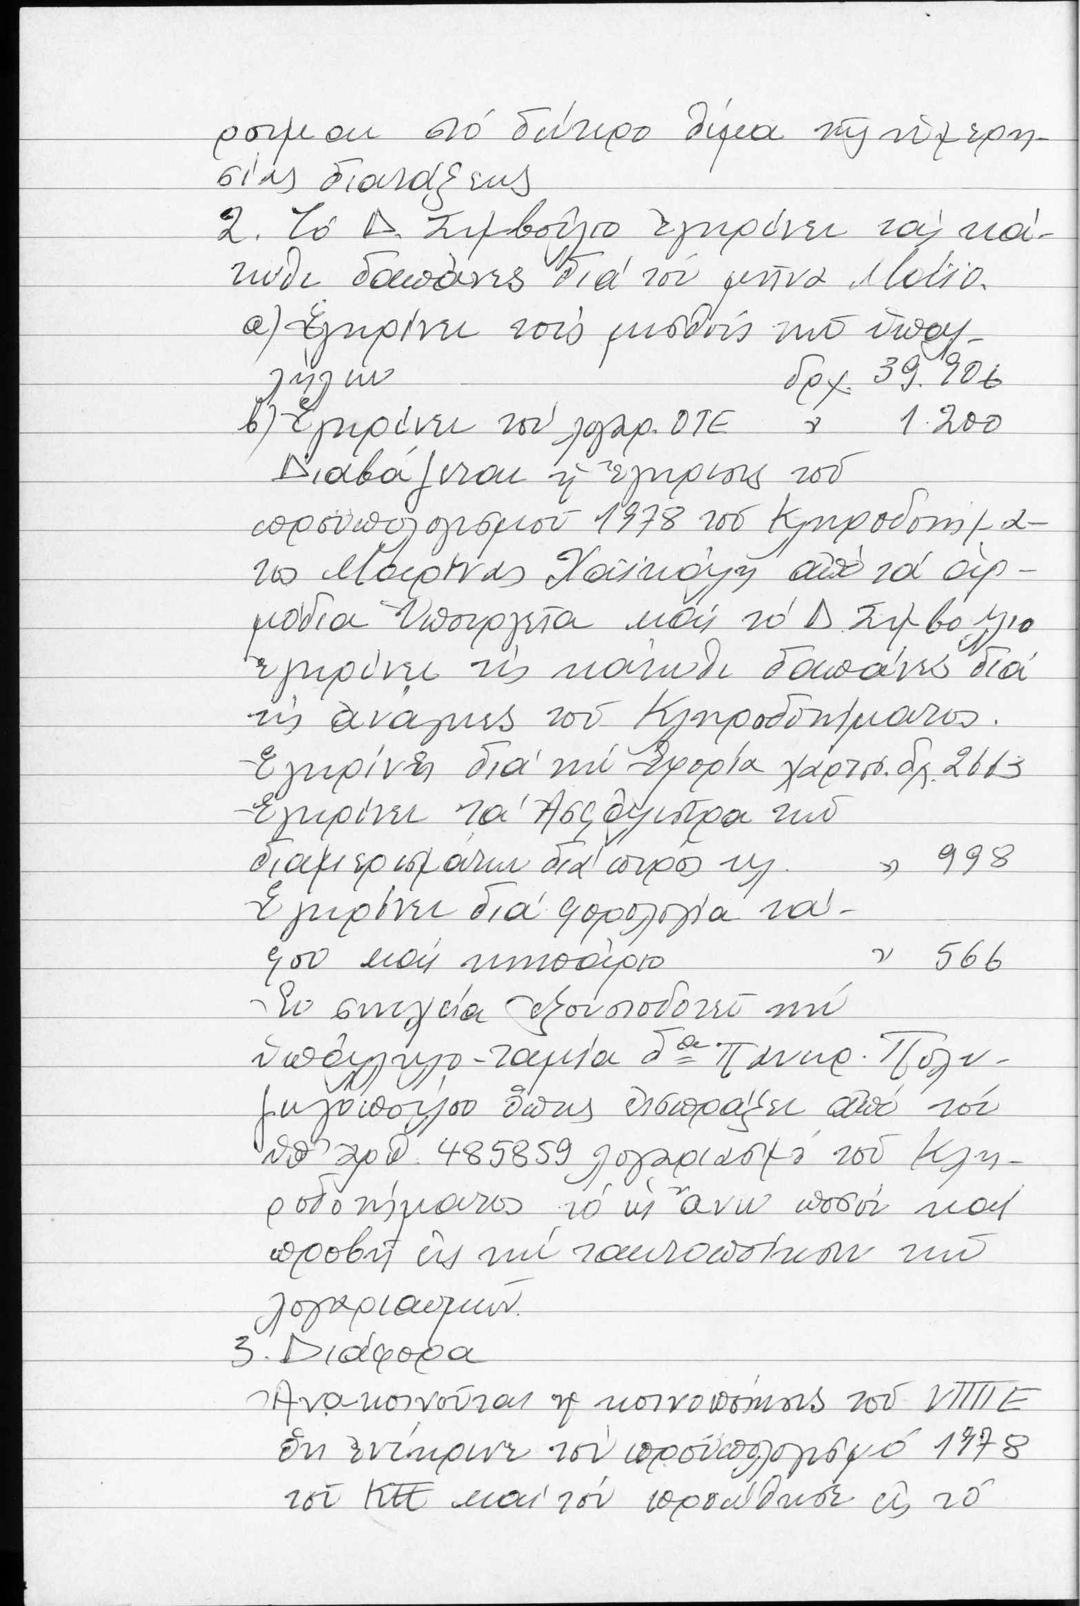 στό δεύτερο θέμα τῆς ἡμερη-
σίας διατάξεως
2. Τό Δ. Συμβούλιο ἐγκρίνει τάς κά-
τωθι δαπάνες διά τόν μῆνα Μάϊο.
α) Ἐγκρίνει τούς μισθούς τῶν ὑπαλ-
λήλων δρχ. 39.906
β) Ἐγκρίνει τόν λογαρ. ΟΤΕ " 1.200
Διαβάζεται ἡ ἔγκρισις τοῦ
προϋπολογισμοῦ 1978 τοῦ Κληροδοτήμα-
τος Μαρίνας ἀπό τά ἁρ-
μόδια Ὑπουργεῖα καί τό Δ. Συμβούλιο
ἐγκρίνει τίς κάτωθι δαπάνες διά
τίς ἀνάγκες τοῦ Κληροδοτήματος.
Ἐγκρίνει διά τήν Ἐφορία χαρτοσ. δρ. 2613
Ἐγκρίνει τά Ἀσφάλιστρα τῶν
διαμερισμάτων διά πυρός κλ. " 998
Ἐγκρίνει διά φορολογία τά-
φου καί κηπάριο " 566
Ἐν συνεχεία ἐξουσιοδοτεῖ τήν
ὑπάλληλο-ταμία δα Πανωρ. Πολυ-
ὅπως εἰσπράξει ἀπό τόν
ὑπ' ἀριθ. 485859 λογαριασμό τοῦ Κλη-
ροδοτήματος τό ὡς ἄνω ποσόν καί
προβῆ εἰς τήν τακτοποίησιν τῶν
λογαριασμῶν.
3. Διάφορα
Ἀνακοινοῦται ἡ κοινοποίησις τοῦ ΥΠΠΕ
ὅτι ἐνέκρινε τόν προϋπολογισμό 1978
τοῦ ΚΠΕ καί τόν προώθησε εἰς τό